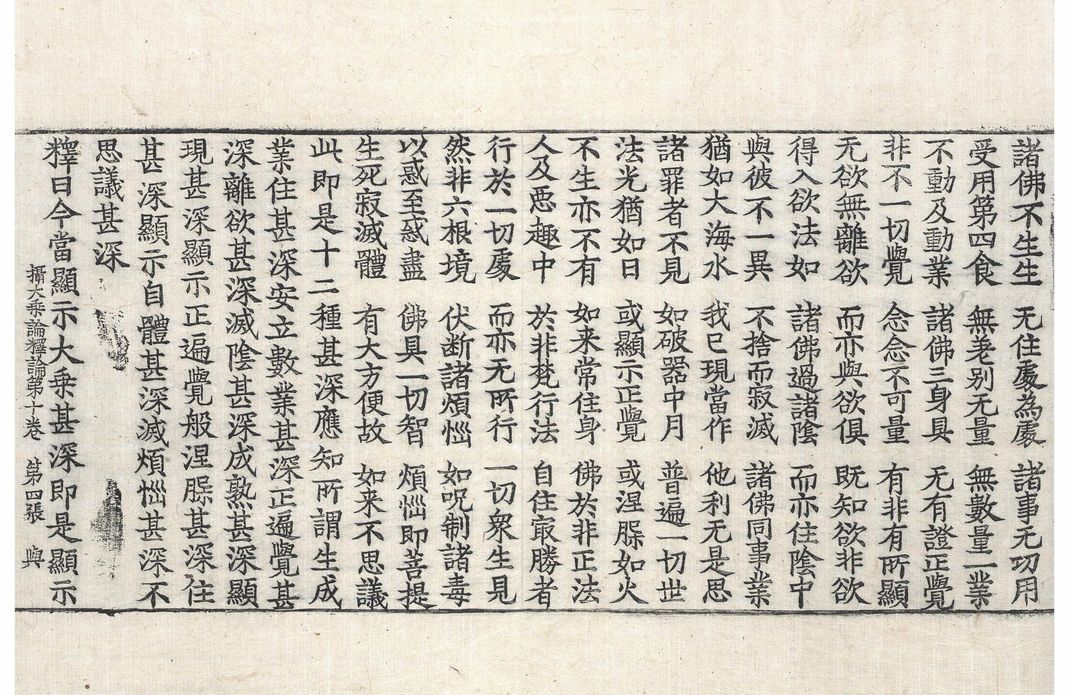 諸佛不生生 无住處為處 諸事无功用
受用第四食 無差别无量 無數量一業
不動及動業 諸佛三身具 无有證正覺
非不一切覺 念念不可量 有非有所顯
无欲無離欲 而亦與欲俱 既知欲非欲
得入欲法如 諸佛過諸陰 而亦住陰中
與彼不一異 不捨而寂滅 諸佛同事業
猶如大海水 我已現當作 他利无是思
諸罪者不見 如破器中月 普遍一切世
法光猶如日 或顯示正覺 或涅腅如火
不生亦不有 如来常住身 佛於非正法
人及悪趣中 於非梵行法 自住㝡勝者
行於一切處 而亦无所行 一切衆生見
然非六根境 伏断諸煩惱 如呪制諸毒
以惑至惑盡 佛具一切智 煩惱即菩提
生死寂滅體 有大方便故 如来不思議
此即是十二種甚深應知所謂生成
業住甚深安立數業甚深正遍覺甚
深離欲甚深滅陰甚深成熟甚深顯
現甚深顯示正遍覺般涅腅甚深住
甚深顯示自體甚深滅煩惱甚深不
思議甚深
攝大乗論釋論第十卷 第四張 與
釋曰今當顯示大乗甚深即是顯示